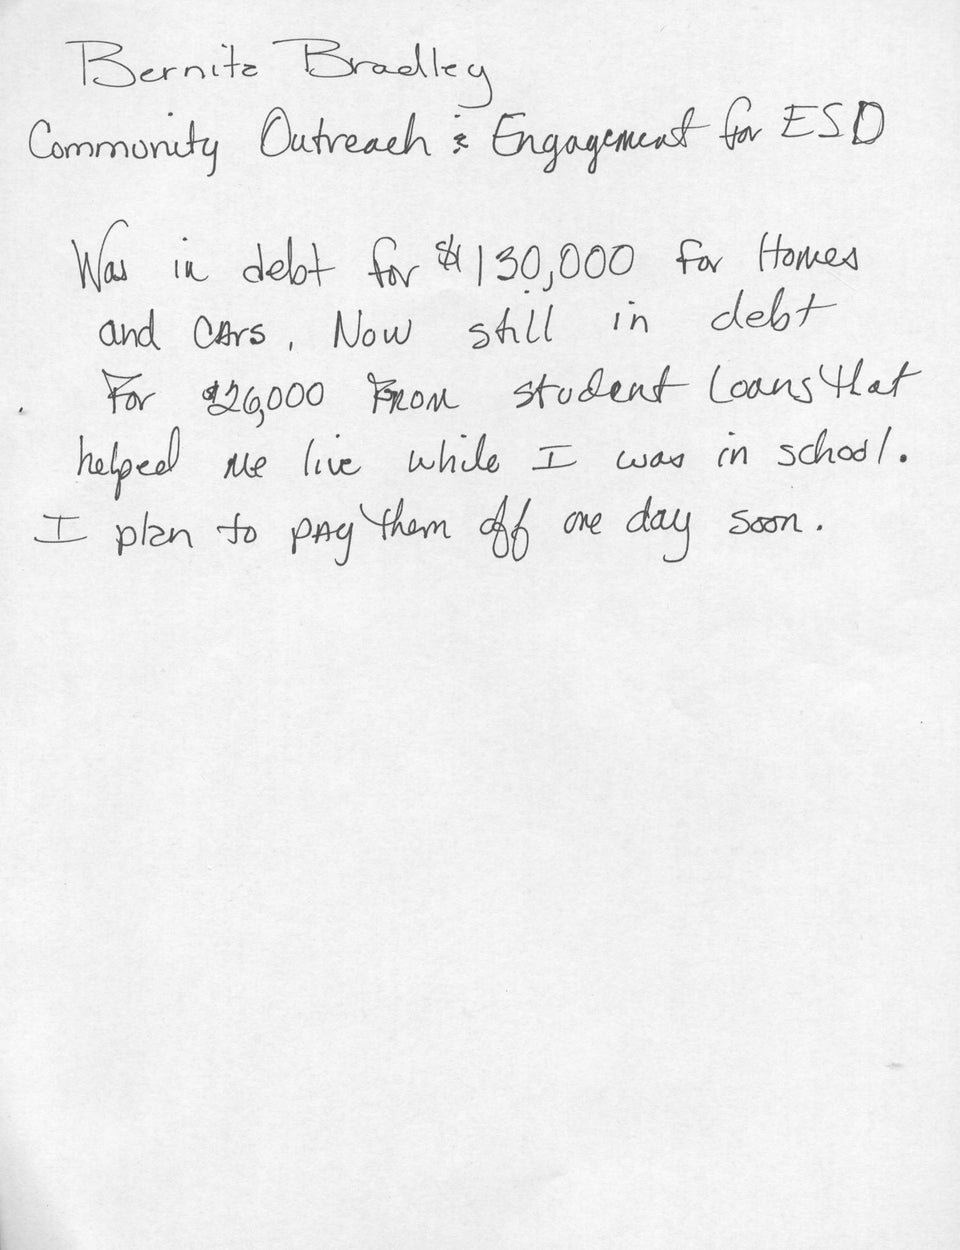 Bernita Bradley
Community Outreach & Engagement for ESD
Was in debt for $130,000 for Homes
and CArs. Now still in debt
For $26,000 From student Loans that
helped me live while I was in school.
I plan to pAy them off one day soon.